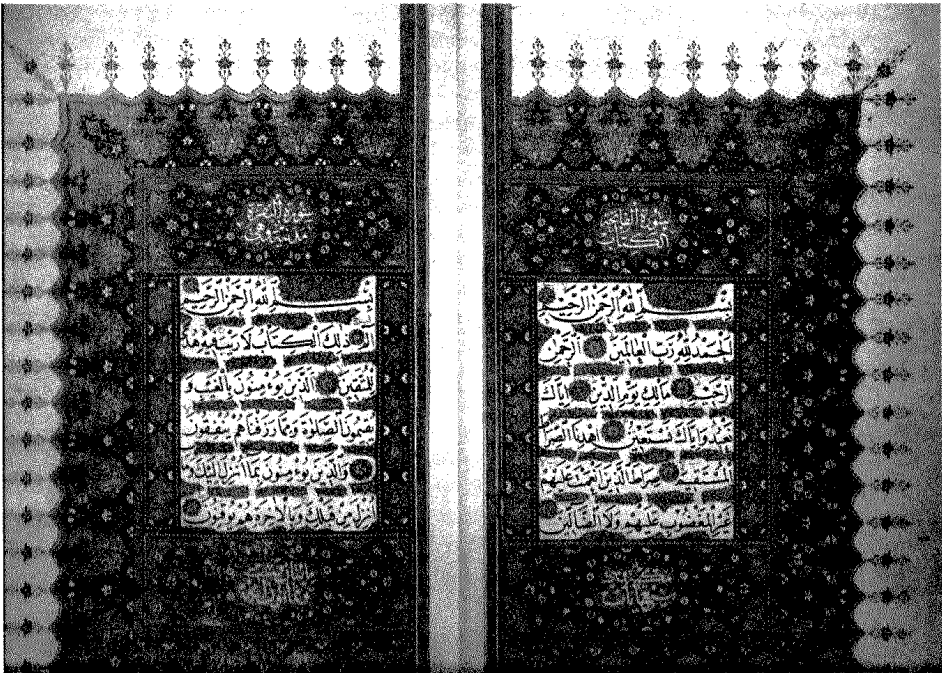 سورة الفاتحة
الكتاب
بسم الله الرحمن الرحيم
الحمد لله رب العالمين الرحمن
الرحيم مالك يوم الدين اياك
نعبد واياك نستعين اهدنا الصراط
المستقيم صراط الذين انعمت عليهم
غير المغضوب عليهم ولا الضالين
سورة البقرة
بسم الله الرحمن الرحيم
الم ذلك الكتاب لا ريب فيه هدى
للمتقين الذين يؤمنون بالغيب و
يقيمون الصلوة ومما رزقناهم ينفقون
والذين يؤمنون بما انزل اليك و
ما انزل من قبلك وبالاخرة هم يوقنون